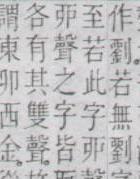 作劉。若無劉
至若此字卯
丣聲之字皆
各有其雙聲。故
謂東卯西金。從